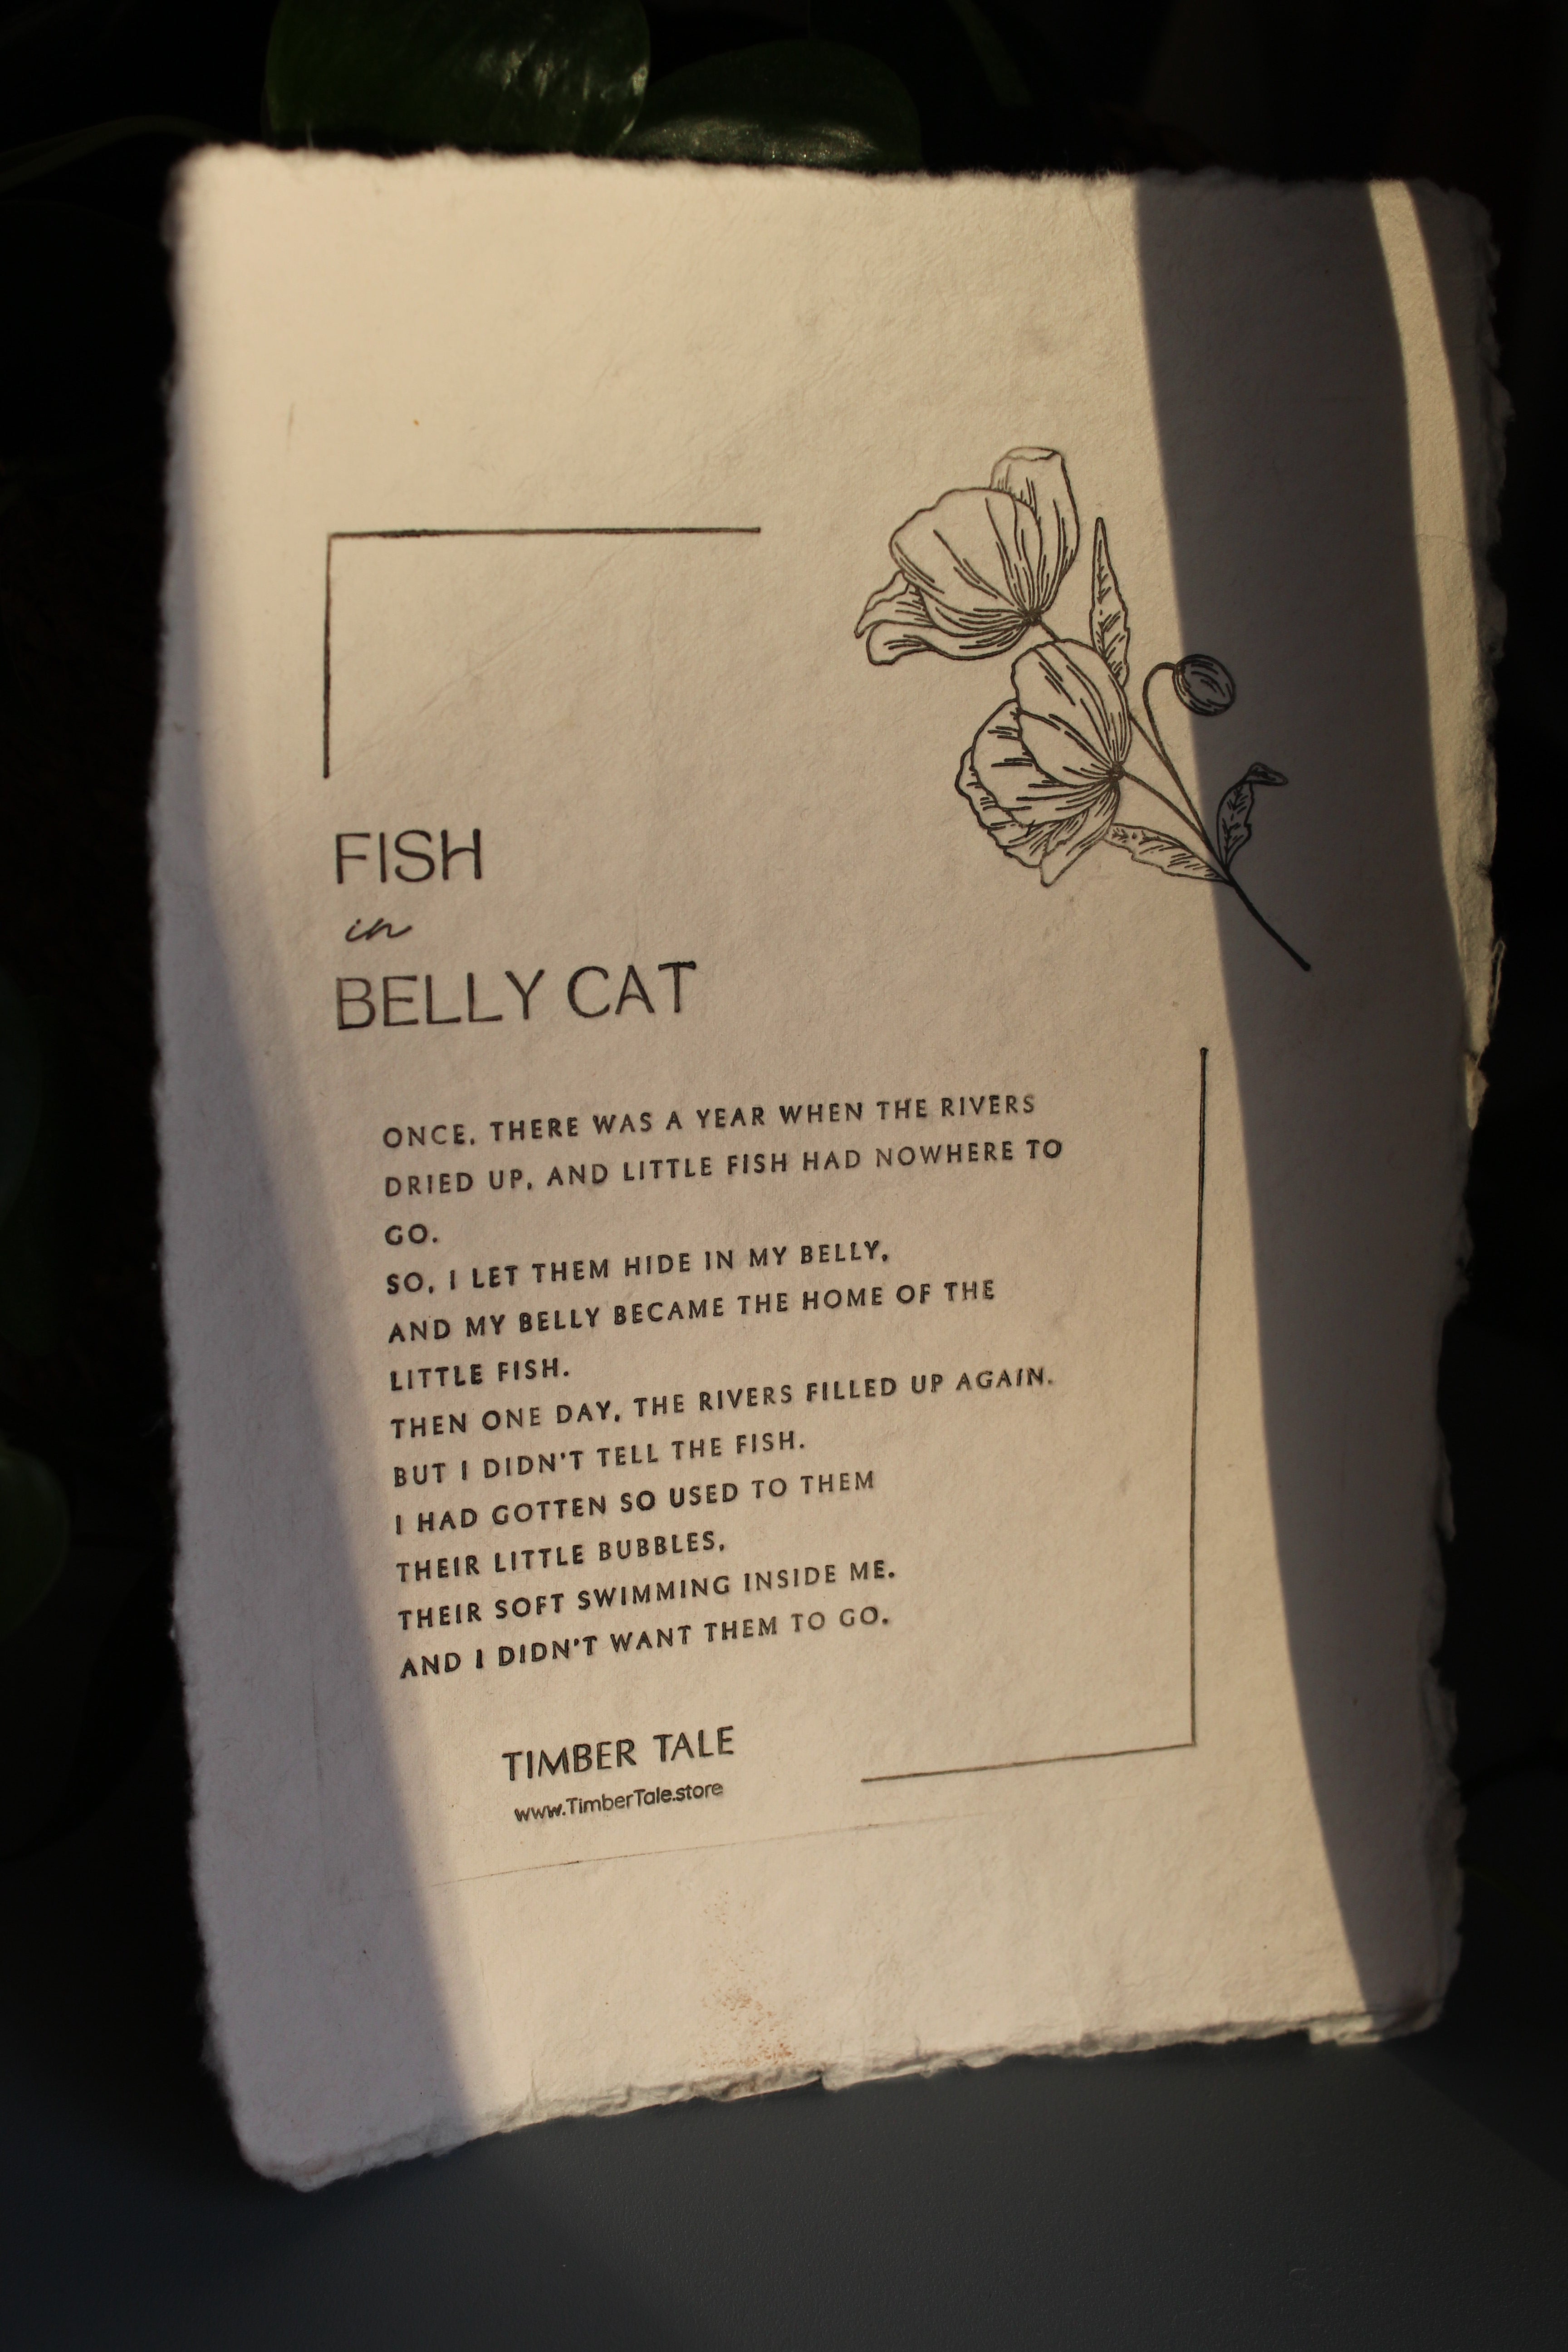 FISH
in
BELLY CAT
ONCE, THERE WAS A YEAR WHEN THE RIVERS
DRIED UP, AND LITTLE FISH HAD NOWHERE TO
GO.
SO, I LET THEM HIDE IN MY BELLY,
AND MY BELLY BECAME THE HOME OF THE
LITTLE FISH.
THEN ONE DAY, THE RIVERS FILLED UP AGAIN.
BUT I DIDN'T TELL THE FISH.
I HAD GOTTEN SO USED TO THEM
THEIR LITTLE BUBBLES,
THEIR SOFT SWIMMING INSIDE ME.
AND I DIDN'T WANT THEM TO GO.
TIMBER TALE
www.TimberTale.store